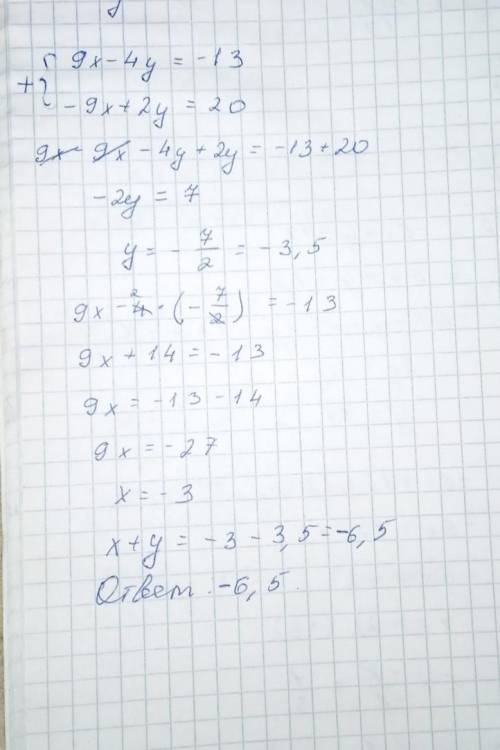 +{ 9x - 4y = -13
-9x + 2y = 20
9x - 9x - 4y + 2y = -13 + 20
-2y = 7
y = - 7/2 = -3,5
9x - 4 2 · (- 7/2) = -13
9x + 14 = -13
9x = -13 - 14
9x = -27
x = -3
x + y = -3 - 3,5 = -6,5
Ответ. -6,5.